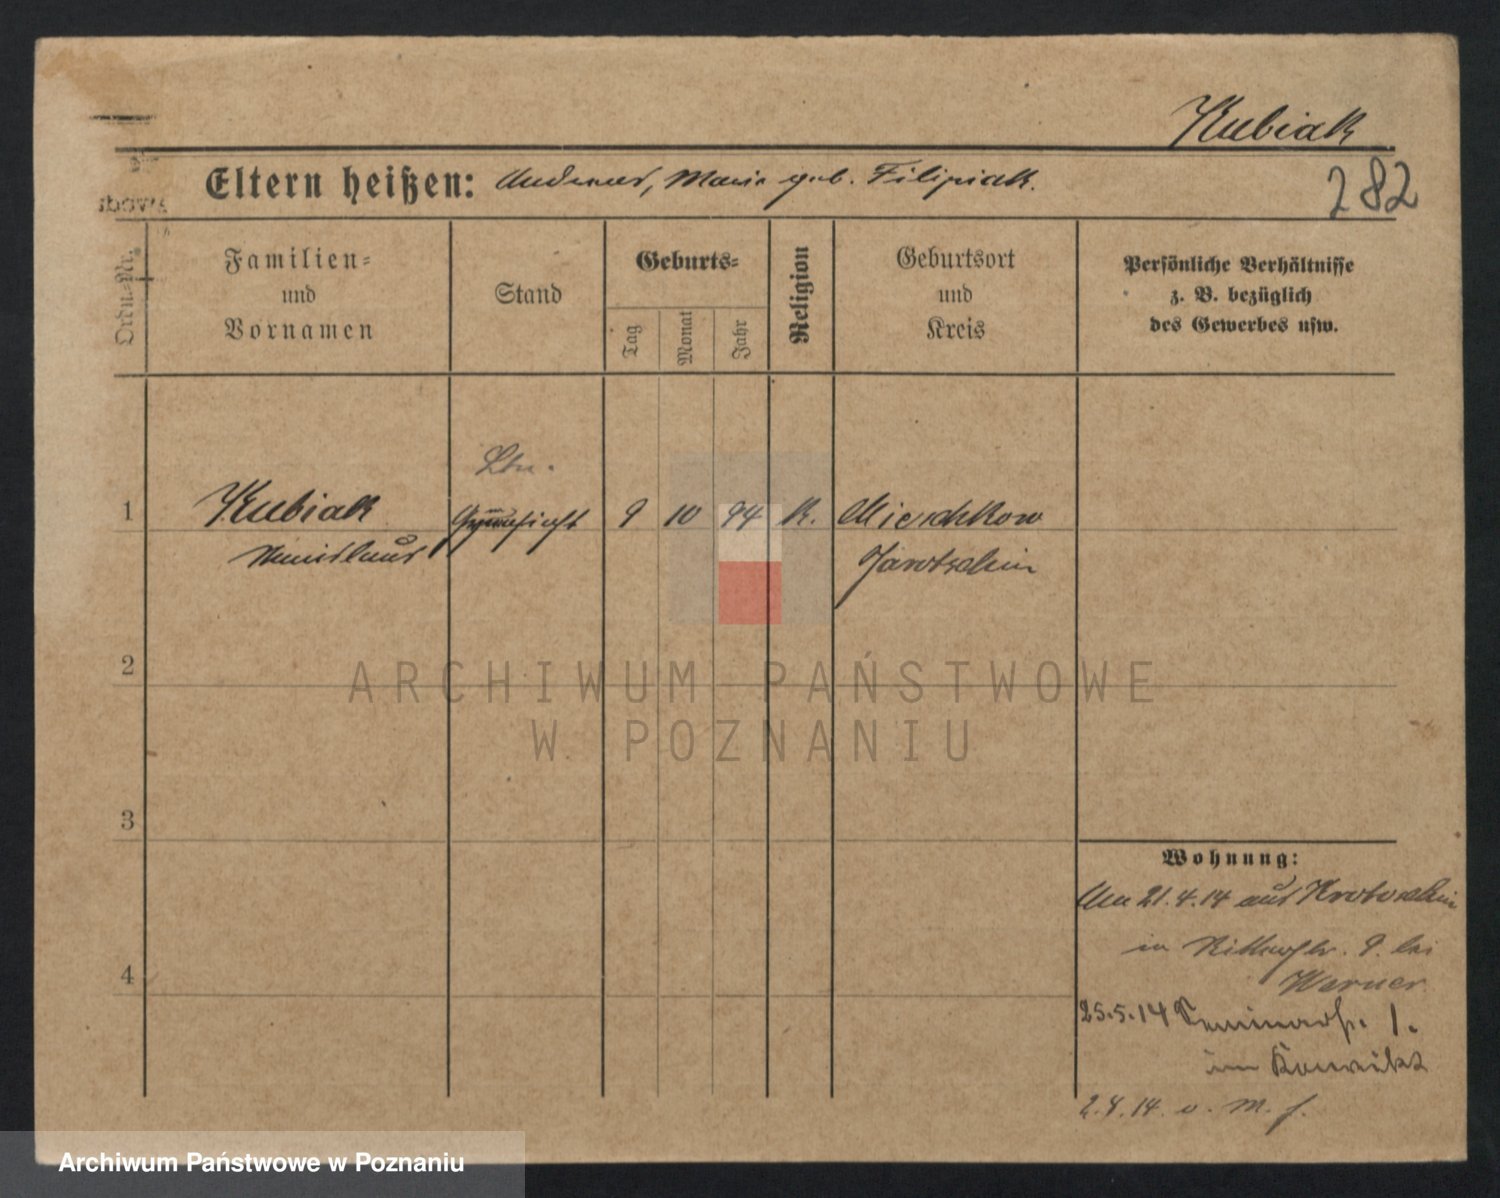 Kubiak
282
Eltern heißen: Andreas, Marie geb. Filipiak.
Ordn.-Nr.
Familien-
und
Vornamen
Stand
Geburts-
Tag
Monat
Jahr
Religion
Geburtsort
und
Kreis
Persönliche Verhältnisse
z. B. bezüglich
des Gewerbes usw.
1
Kubiak
Stanislaus
Gymnasiast
9 10 94 K.
Mieschkow
Jarotschin
2
3
4
Wohnung:
Am 21.4.14 aus Krotoschin
in Ritterstr. 9. bei
Werner
25.5.14 Seminarstr. 1.
im Konvikt
ARCHIWUM PAŃSTWOWE
W POZNANIU
Archiwum Państwowe w Poznaniu